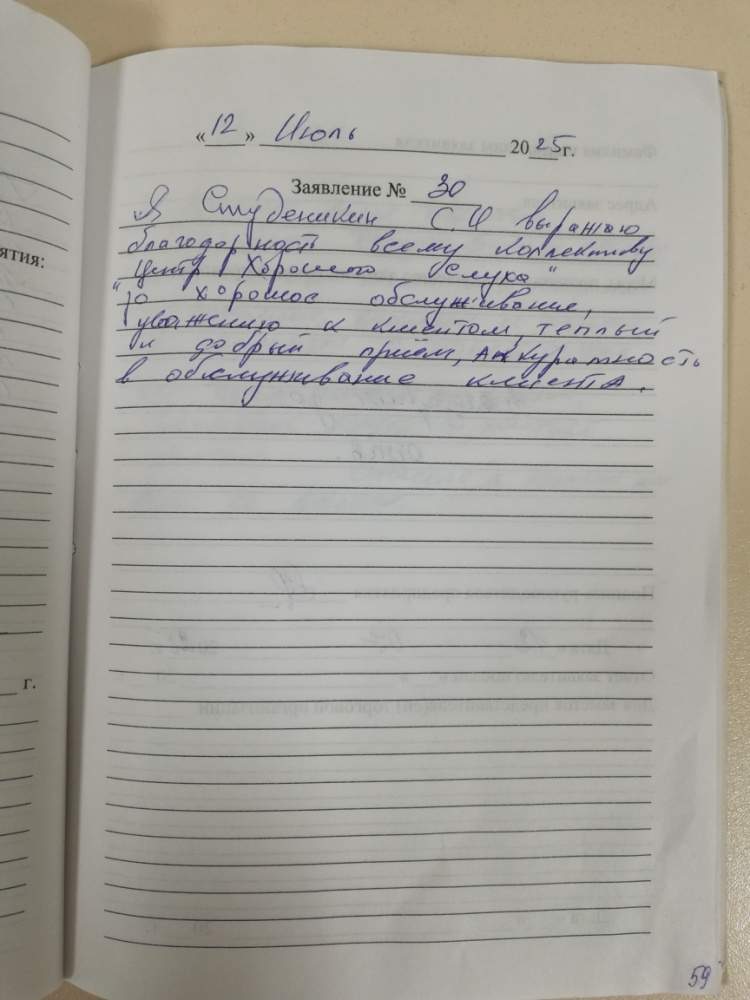 «12» Июль 2025г.
Заявление № 30
Я Студеникин С.И выражаю
благодарность всему коллективу
Центр "Хорошего Слуха"
за хорошое обслуживание,
уважению к клиентом, теплый
и добрый приём, аккуратность
в обслуживание клиента.
ятия:
г.
59